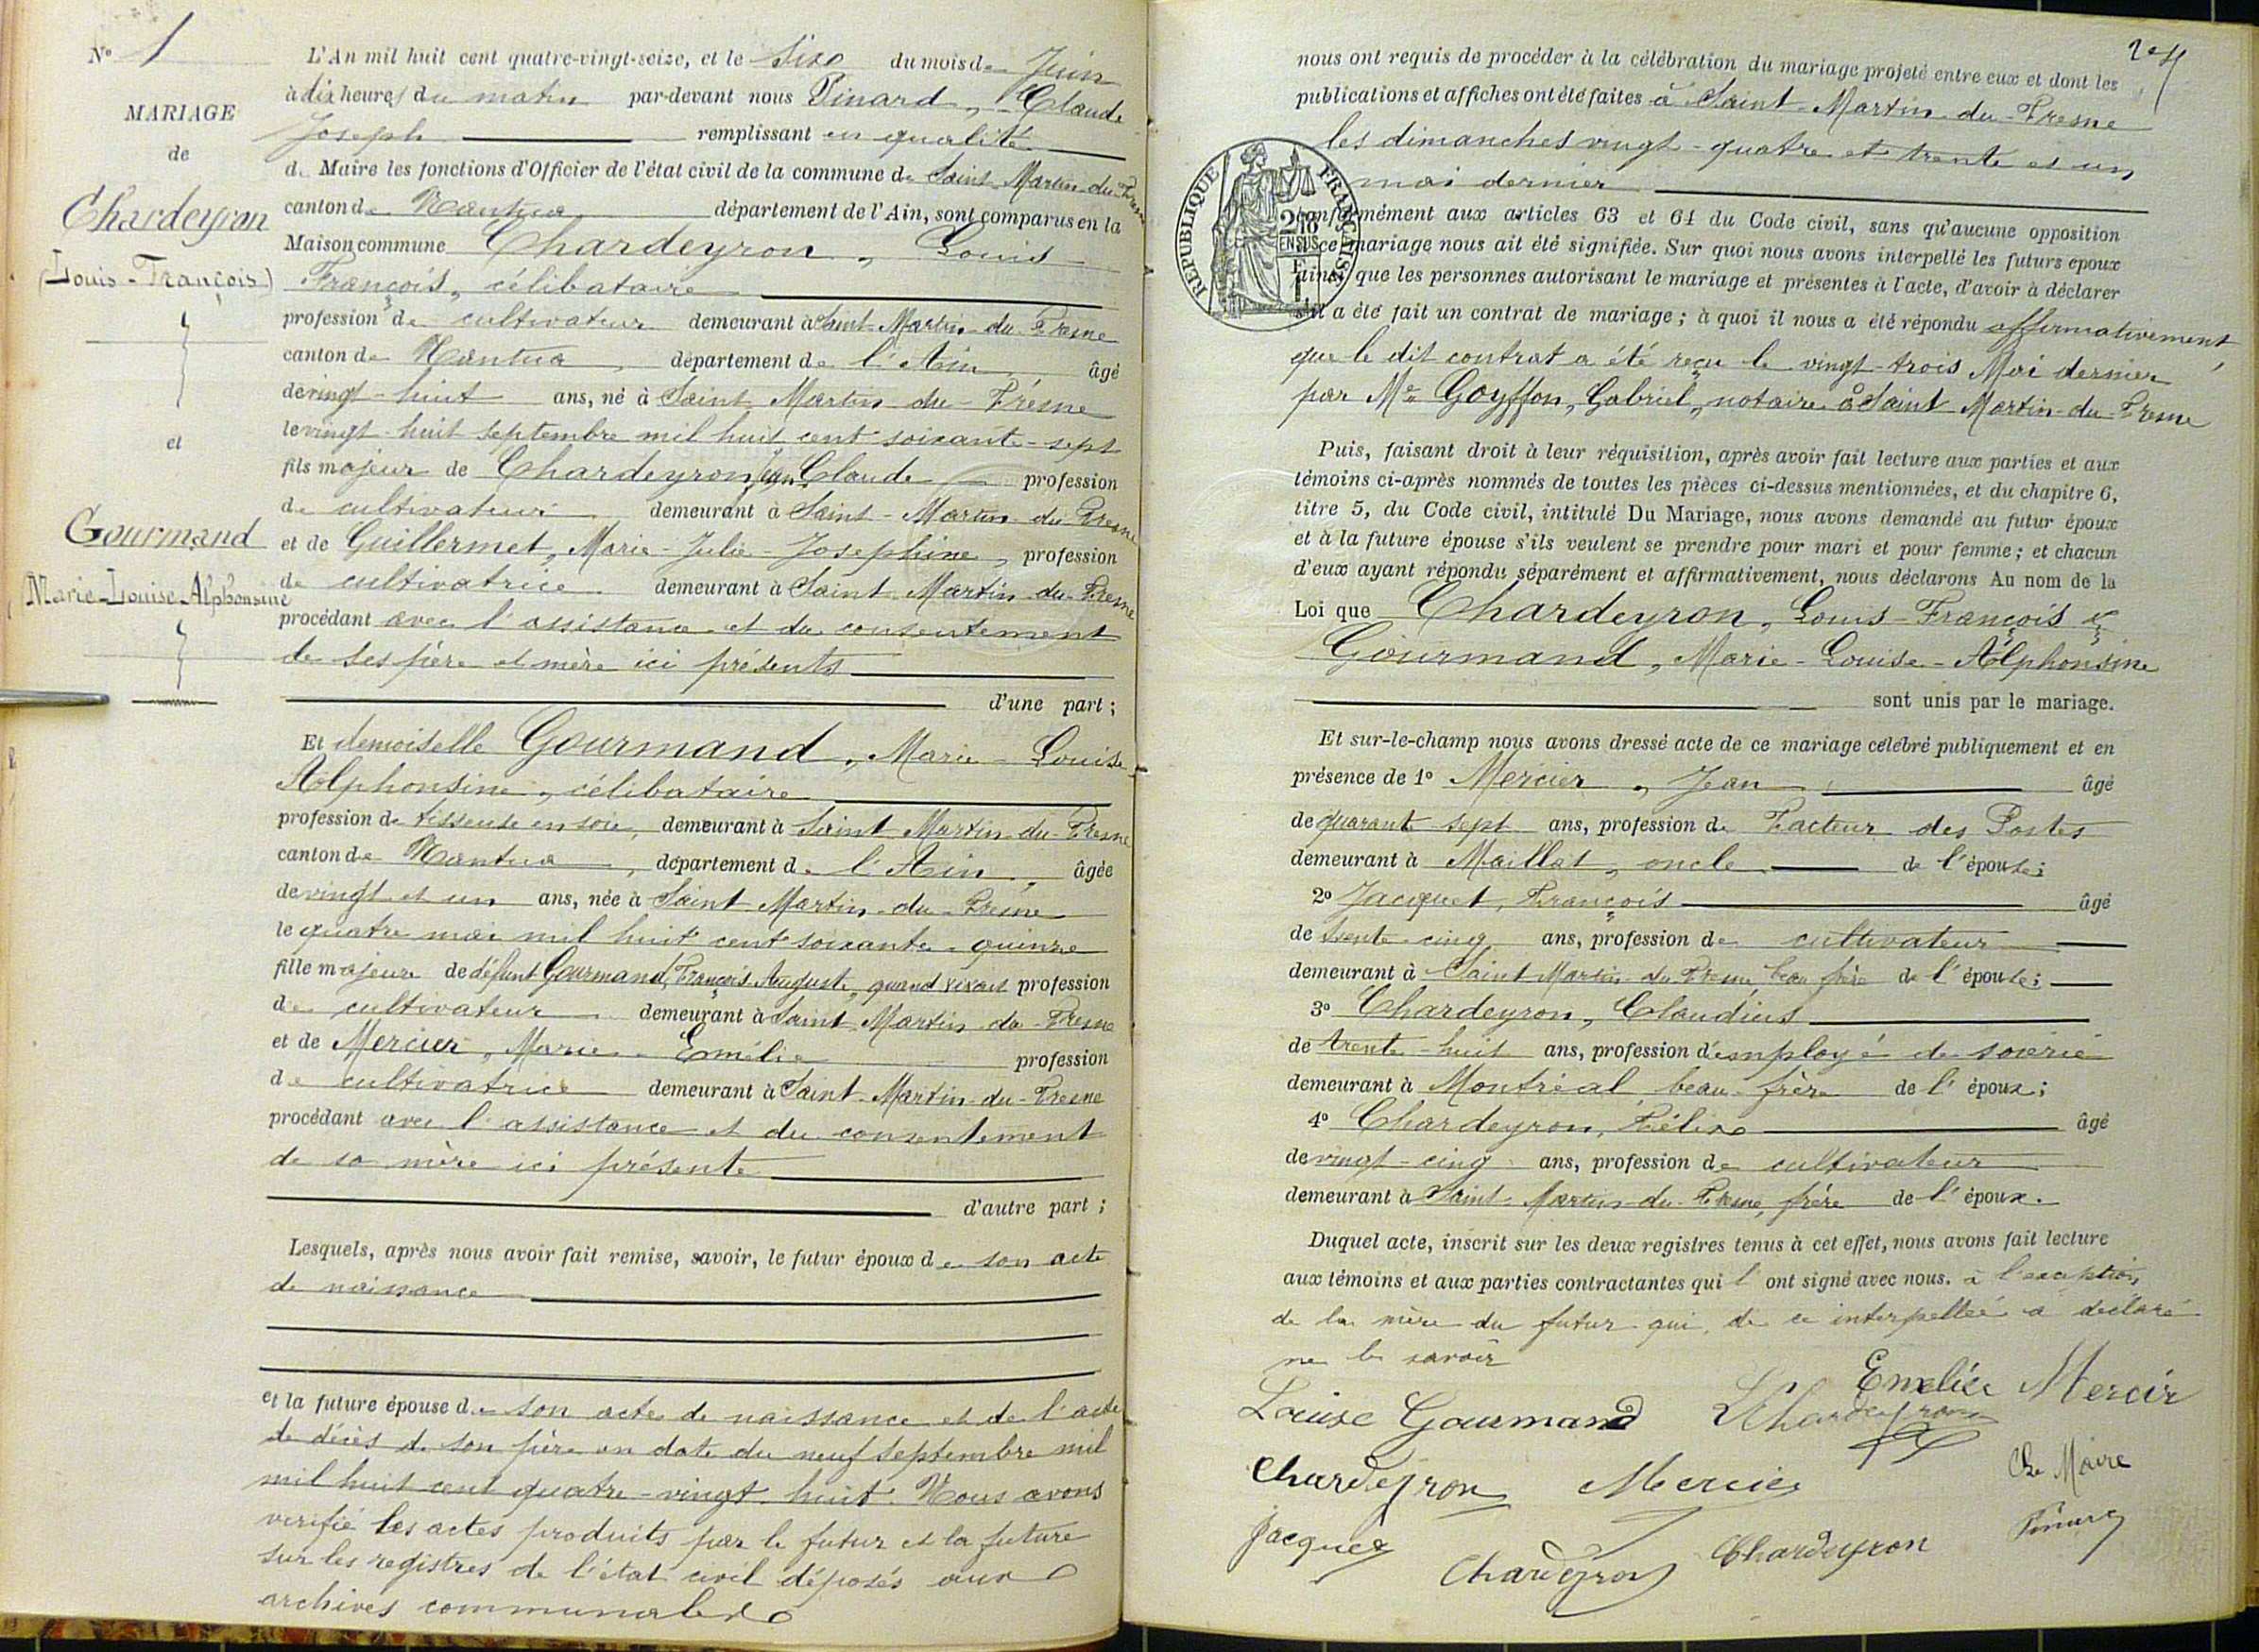 N° 1
MARIAGE
de
Chardeyron
(Louis-François)
et
Gourmand
Marie-Louise-Alphonsine
L'An mil huit cent quatre-vingt-seize, et le six du mois de Juin
à dix heures du matin par-devant nous Pinard, Claude
Joseph remplissant en qualité
de Maire les fonctions d'Officier de l'état civil de la commune de Saint-Martin-du-Fresne
canton de Nantua département de l'Ain, sont comparus en la
Maison commune Chardeyron, Louis
François, célibataire
profession de cultivateur demeurant à Saint-Martin-du-Fresne
canton de Nantua, département de l'Ain, âgé
de vingt-huit ans, né à Saint Martin-du-Fresne
le vingt-huit septembre mil huit cent soixante-sept
fils majeur de Chardeyron Jean Claude profession
de cultivateur demeurant à Saint-Martin-du-Fresne
et de Guillermet, Marie-Julie-Josephine, profession
de cultivatrice demeurant à Saint-Martin-du-Fresne
procédant avec l'assistance et du consentement
de ses père et mère ici présents
d'une part ;
Et demoiselle Gourmand, Marie-Louise
Alphonsine, célibataire
profession de tisseuse en soie, demeurant à Saint Martin-du-Fresne
canton de Nantua, département de l'Ain, âgée
de vingt et un ans, née à Saint-Martin-du-Fresne
le quatre mai mil huit cent soixante-quinze
fille majeure de défunt Gourmand, François Auguste, quand vivait profession
de cultivateur demeurant à Saint-Martin-du-Fresne
et de Mercier, Marie-Emélie profession
de cultivatrice demeurant à Saint-Martin-du-Fresne
procédant avec l'assistance et du consentement
de sa mère ici présente
d'autre part ;
Lesquels, après nous avoir fait remise, savoir, le futur époux de son acte
de naissance
et la future épouse de son acte de naissance et de l'acte
de décès de son père en date du neuf septembre mil
mil huit cent quatre-vingt-huit. Nous avons
verifié les actes produits par le futur et la future
sur les registres de l'état civil déposés aux
archives communales
nous ont requis de procéder à la célébration du mariage projeté entre eux et dont les
publications et affiches ont été faites à Saint-Martin-du-Fresne
les dimanches vingt-quatre et trente et un
mai dernier
RÉPUBLIQUE FRANÇAISE
conformément aux articles 63 et 64 du Code civil, sans qu'aucune opposition
à ce mariage nous ait été signifiée. Sur quoi nous avons interpellé les futurs époux
ainsi que les personnes autorisant le mariage et présentes à l'acte, d'avoir à déclarer
s'il a été fait un contrat de mariage ; à quoi il nous a été répondu affirmativement,
que le dit contrat a été reçu le vingt-trois Mai dernier
par Me Goyffon, Gabriel, notaire à Saint Martin-du-Fresne
Puis, faisant droit à leur réquisition, après avoir fait lecture aux parties et aux
témoins ci-après nommés de toutes les pièces ci-dessus mentionnées, et du chapitre 6,
titre 5, du Code civil, intitulé Du Mariage, nous avons demandé au futur époux
et à la future épouse s'ils veulent se prendre pour mari et pour femme ; et chacun
d'eux ayant répondu séparément et affirmativement, nous déclarons Au nom de la
Loi que Chardeyron, Louis-François &
Gourmand, Marie-Louise-Alphonsine
sont unis par le mariage.
Et sur-le-champ nous avons dressé acte de ce mariage célébré publiquement et en
présence de 1° Mercier, Jean âgé
de quarante sept ans, profession de Facteur des Postes
demeurant à Maillat, oncle de l'épouse ;
2° Jacquet, François âgé
de trente-cinq ans, profession de cultivateur
demeurant à Saint Martin-du-Fresne, beau frère de l'épouse ;
3° Chardeyron, Claudius
de trente-huit ans, profession d'employé de soierie
demeurant à Montréal, beau-frère de l'époux ;
4° Chardeyron, Félix âgé
de vingt-cinq ans, profession de cultivateur
demeurant à Saint-Martin-du-Fresne, frère de l'époux.
Duquel acte, inscrit sur les deux registres tenus à cet effet, nous avons fait lecture
aux témoins et aux parties contractantes qui l'ont signé avec nous. à l'exception
de la mère du futur qui, de ce interpellée a déclaré
ne le savoir
Emelie Mercir
Louise Gourmand LChardeyron
Chardeyron Mercier Le Maire
Jacquet Chardeyron Chardeyron Pinard